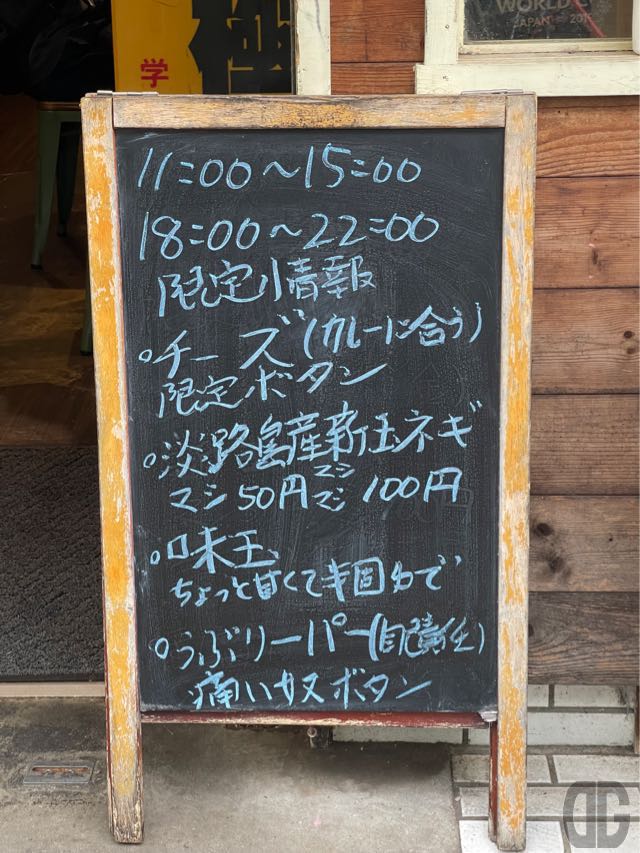 極
学
WORLD C
JAPAN 2019
11:00〜15:00
18:00〜22:00
限定情報
○チーズ(カレーに合う)
限定ボタン
○淡路島産新玉ネギ
マシ50円マシマシ100円
○味玉、
ちょっと甘くて半固ゆで
○うぶりーパー(自己責任)
痛い奴ボタン
DG